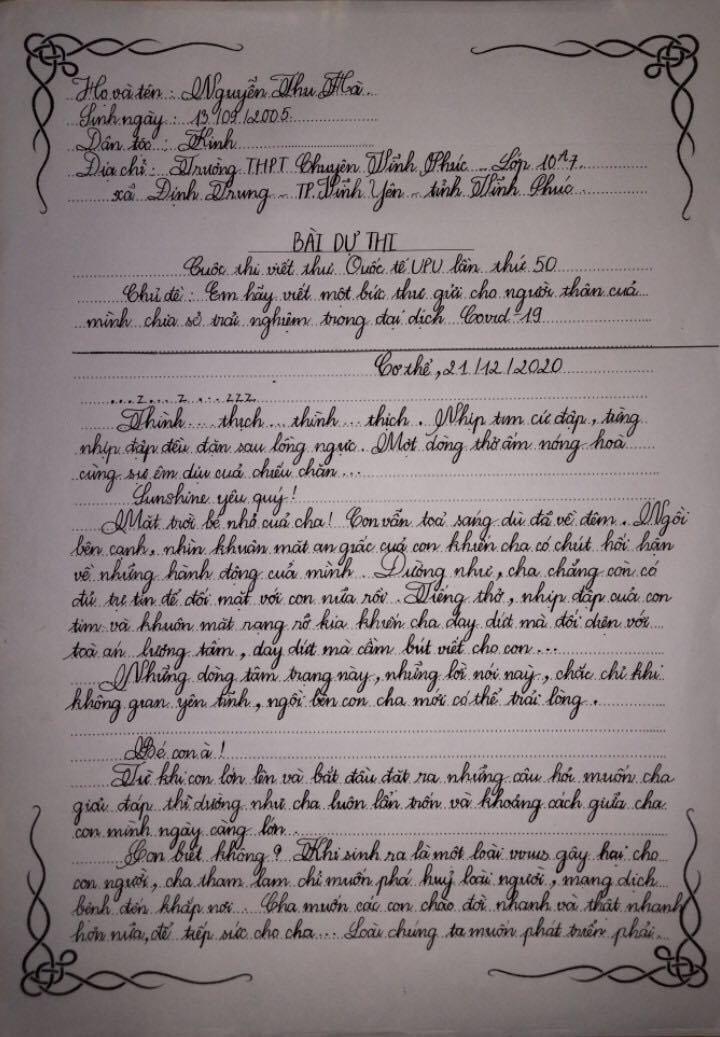 Họ và tên : Nguyễn Thu Hà
Sinh ngày : 13/09/2005
Dân tộc : Kinh
Địa chỉ : Trường THPT Chuyên Vĩnh Phúc - Lớp 10A7
xã Định Trung - TP.Vĩnh Yên - tỉnh Vĩnh Phúc
BÀI DỰ THI
Cuộc thi viết thư Quốc tế UPU lần thứ 50
Chủ đề : Em hãy viết một bức thư gửi cho người thân của
mình chia sẻ trải nghiệm trong đại dịch Covid-19
Cơ thể, 21/12/2020
...z...z...zzz
Thình...thịch...thình...thịch. Nhịp tim cứ đập, từng
nhịp đập đều đặn sau lồng ngực. Một dòng thở ấm nóng hoà
cùng sự êm dịu của chiếu chăn...
Sunshine yêu quý!
Mặt trời bé nhỏ của cha! Con vẫn toả sáng dù đã về đêm. Ngồi
bên cạnh, nhìn khuân mặt an giấc của con khiến cha có chút hối hận
về những hành động của mình. Dường như, cha chẳng còn có
đủ tự tin để đối mặt với con nữa rồi. Tiếng thở, nhịp đập của con
tim và khuôn mặt rạng rỡ kia khiến cha day dứt mà đối diện với
toà án lương tâm, day dứt mà cầm bút viết cho con...
Những dòng tâm trạng này, những lời nói này, chắc chỉ khi
không gian yên tĩnh, ngồi bên con cha mới có thể trải lòng.
Bé con à!
Từ khi con lớn lên và bắt đầu đặt ra những câu hỏi muốn cha
giải đáp thì dường như cha luôn lẩn trốn và khoảng cách giữa cha
con mình ngày càng lớn.
Con biết không? Khi sinh ra là một loài virus gây hại cho
con người, cha tham lam chỉ muốn phá huỷ loài người, mang dịch
bệnh đến khắp nơi. Cha muốn các con chào đời nhanh và thật nhanh
hơn nữa, để tiếp sức cho cha... Loài chúng ta muốn phát triển phải